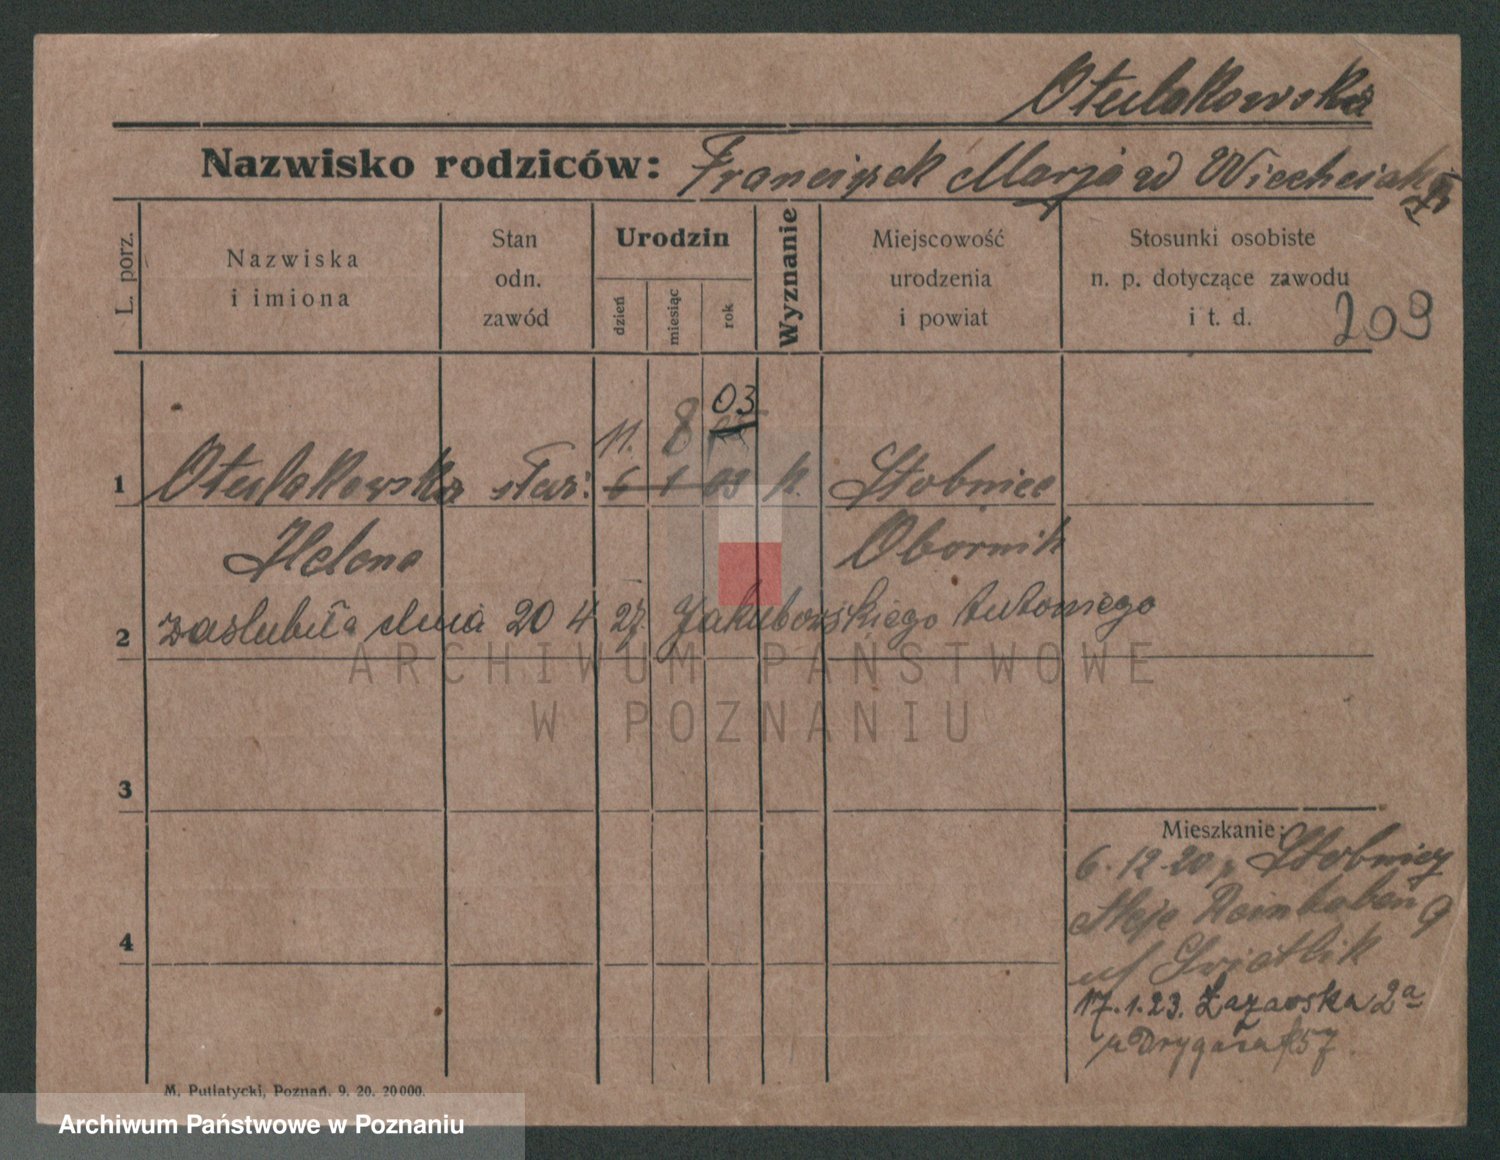 Otulakowska
Nazwisko rodziców: Franciszek Marja w Wiechciak
L. porz.
Nazwiska
i imiona
Stan
odn.
zawód
Urodzin
dzień
miesiąc
rok
Wyznanie
Miejscowość
urodzenia
i powiat
Stosunki osobiste
n. p. dotyczące zawodu
i t. d.
209
03
11. 8
1 Otulakowska służ. 6 1 03 k. Stobnice
Helena Obornik
2 zaslubiła dnia 20 4 27. Jakubowskiego Antoniego
3
Mieszkanie:
6.12.20 Stobnicy
Aleje 9
u/
4
17.1.23. Łazarska 2a
u Drygasa 57
M. Putiatycki, Poznań. 9. 20. 20000.
ARCHIWUM PAŃSTWOWE
W POZNANIU
Archiwum Państwowe w Poznaniu